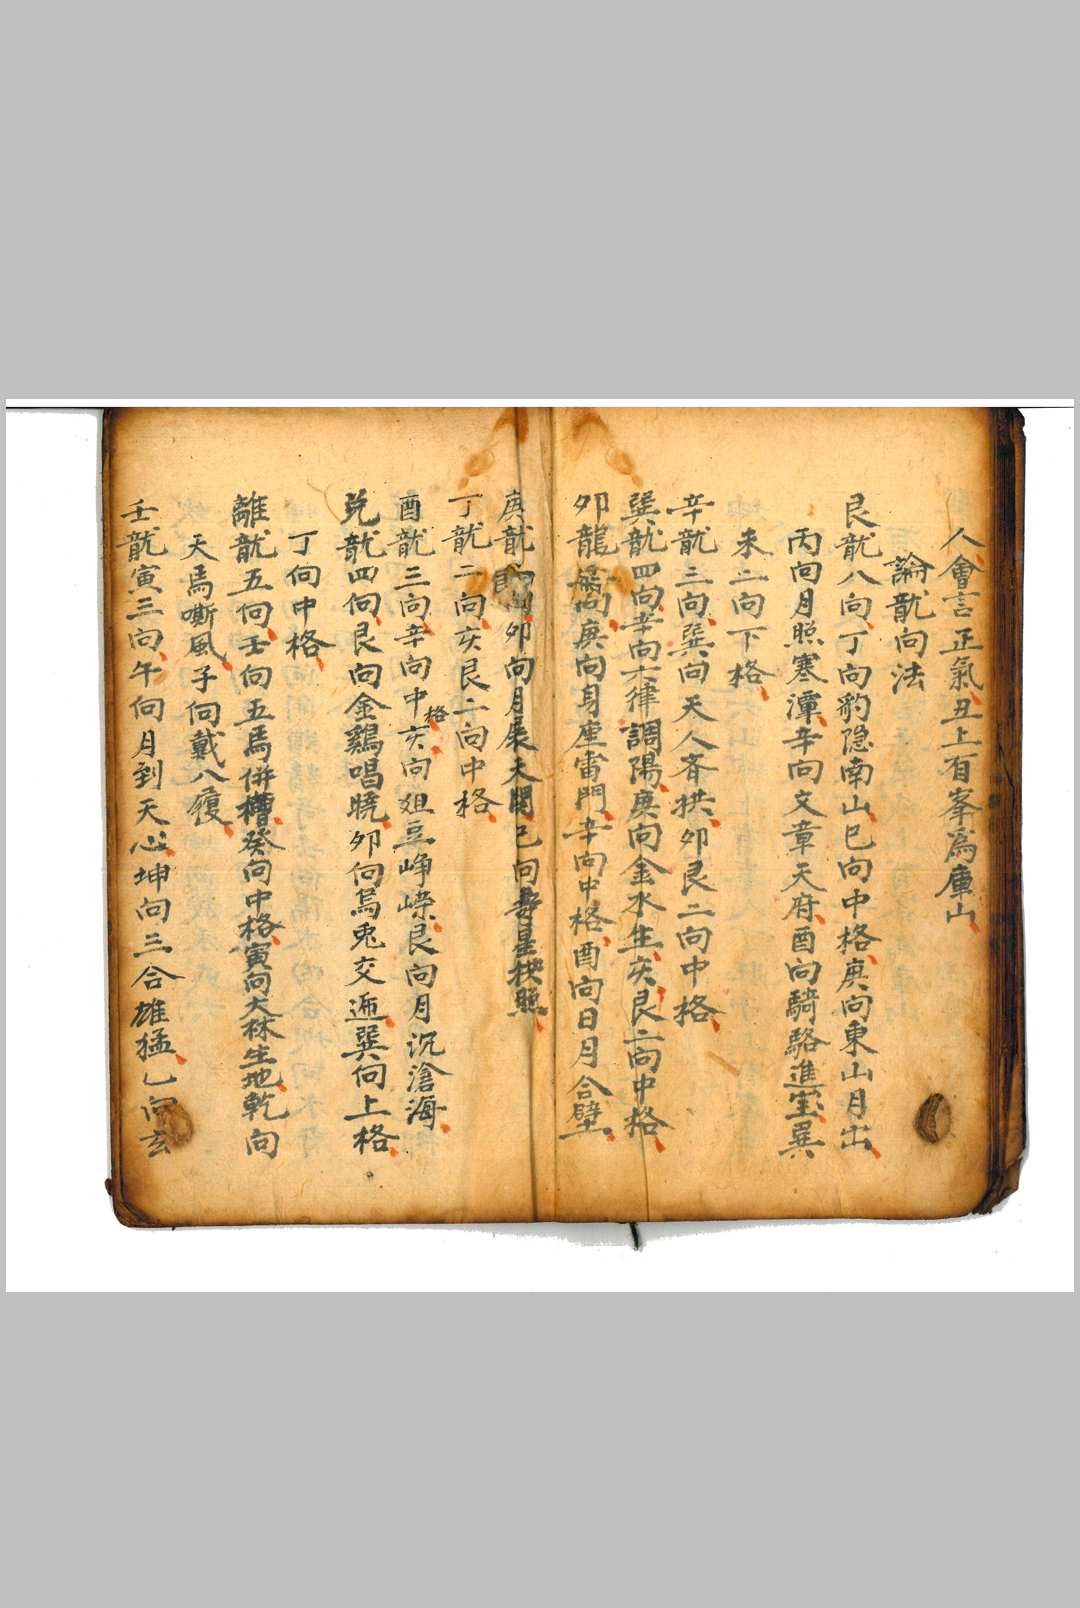 人會言正氣丑上有峯爲庫山
論龍向法
艮龍八向丁向豹隐南山巳向中格庚向東山月出
丙向月照寒潭辛向文章天府酉向騎駱進宝巽
未二向下格
辛龍三向巽向天人齊拱卯艮二向中格
巽龍四向辛向六律調陽庚向金水生亥艮二向中格
卯龍向庚向身座雷門辛向中格酉向日月合璧
庚龍四卯向月展天関巳向壽星拱照
丁龍二向亥艮二向中格
酉龍三向辛向中格亥向俎豆峥嶸艮向月沉滄海
兌龍四向艮向金鷄唱曉卯向烏兎交逓巽向上格
丁向中格
離龍五向壬向五馬併槽癸向中格寅向大林生地乾向
天馬嘶風子向戴八履
壬龍寅三向午向月到天心坤向三合雄猛乙向玄